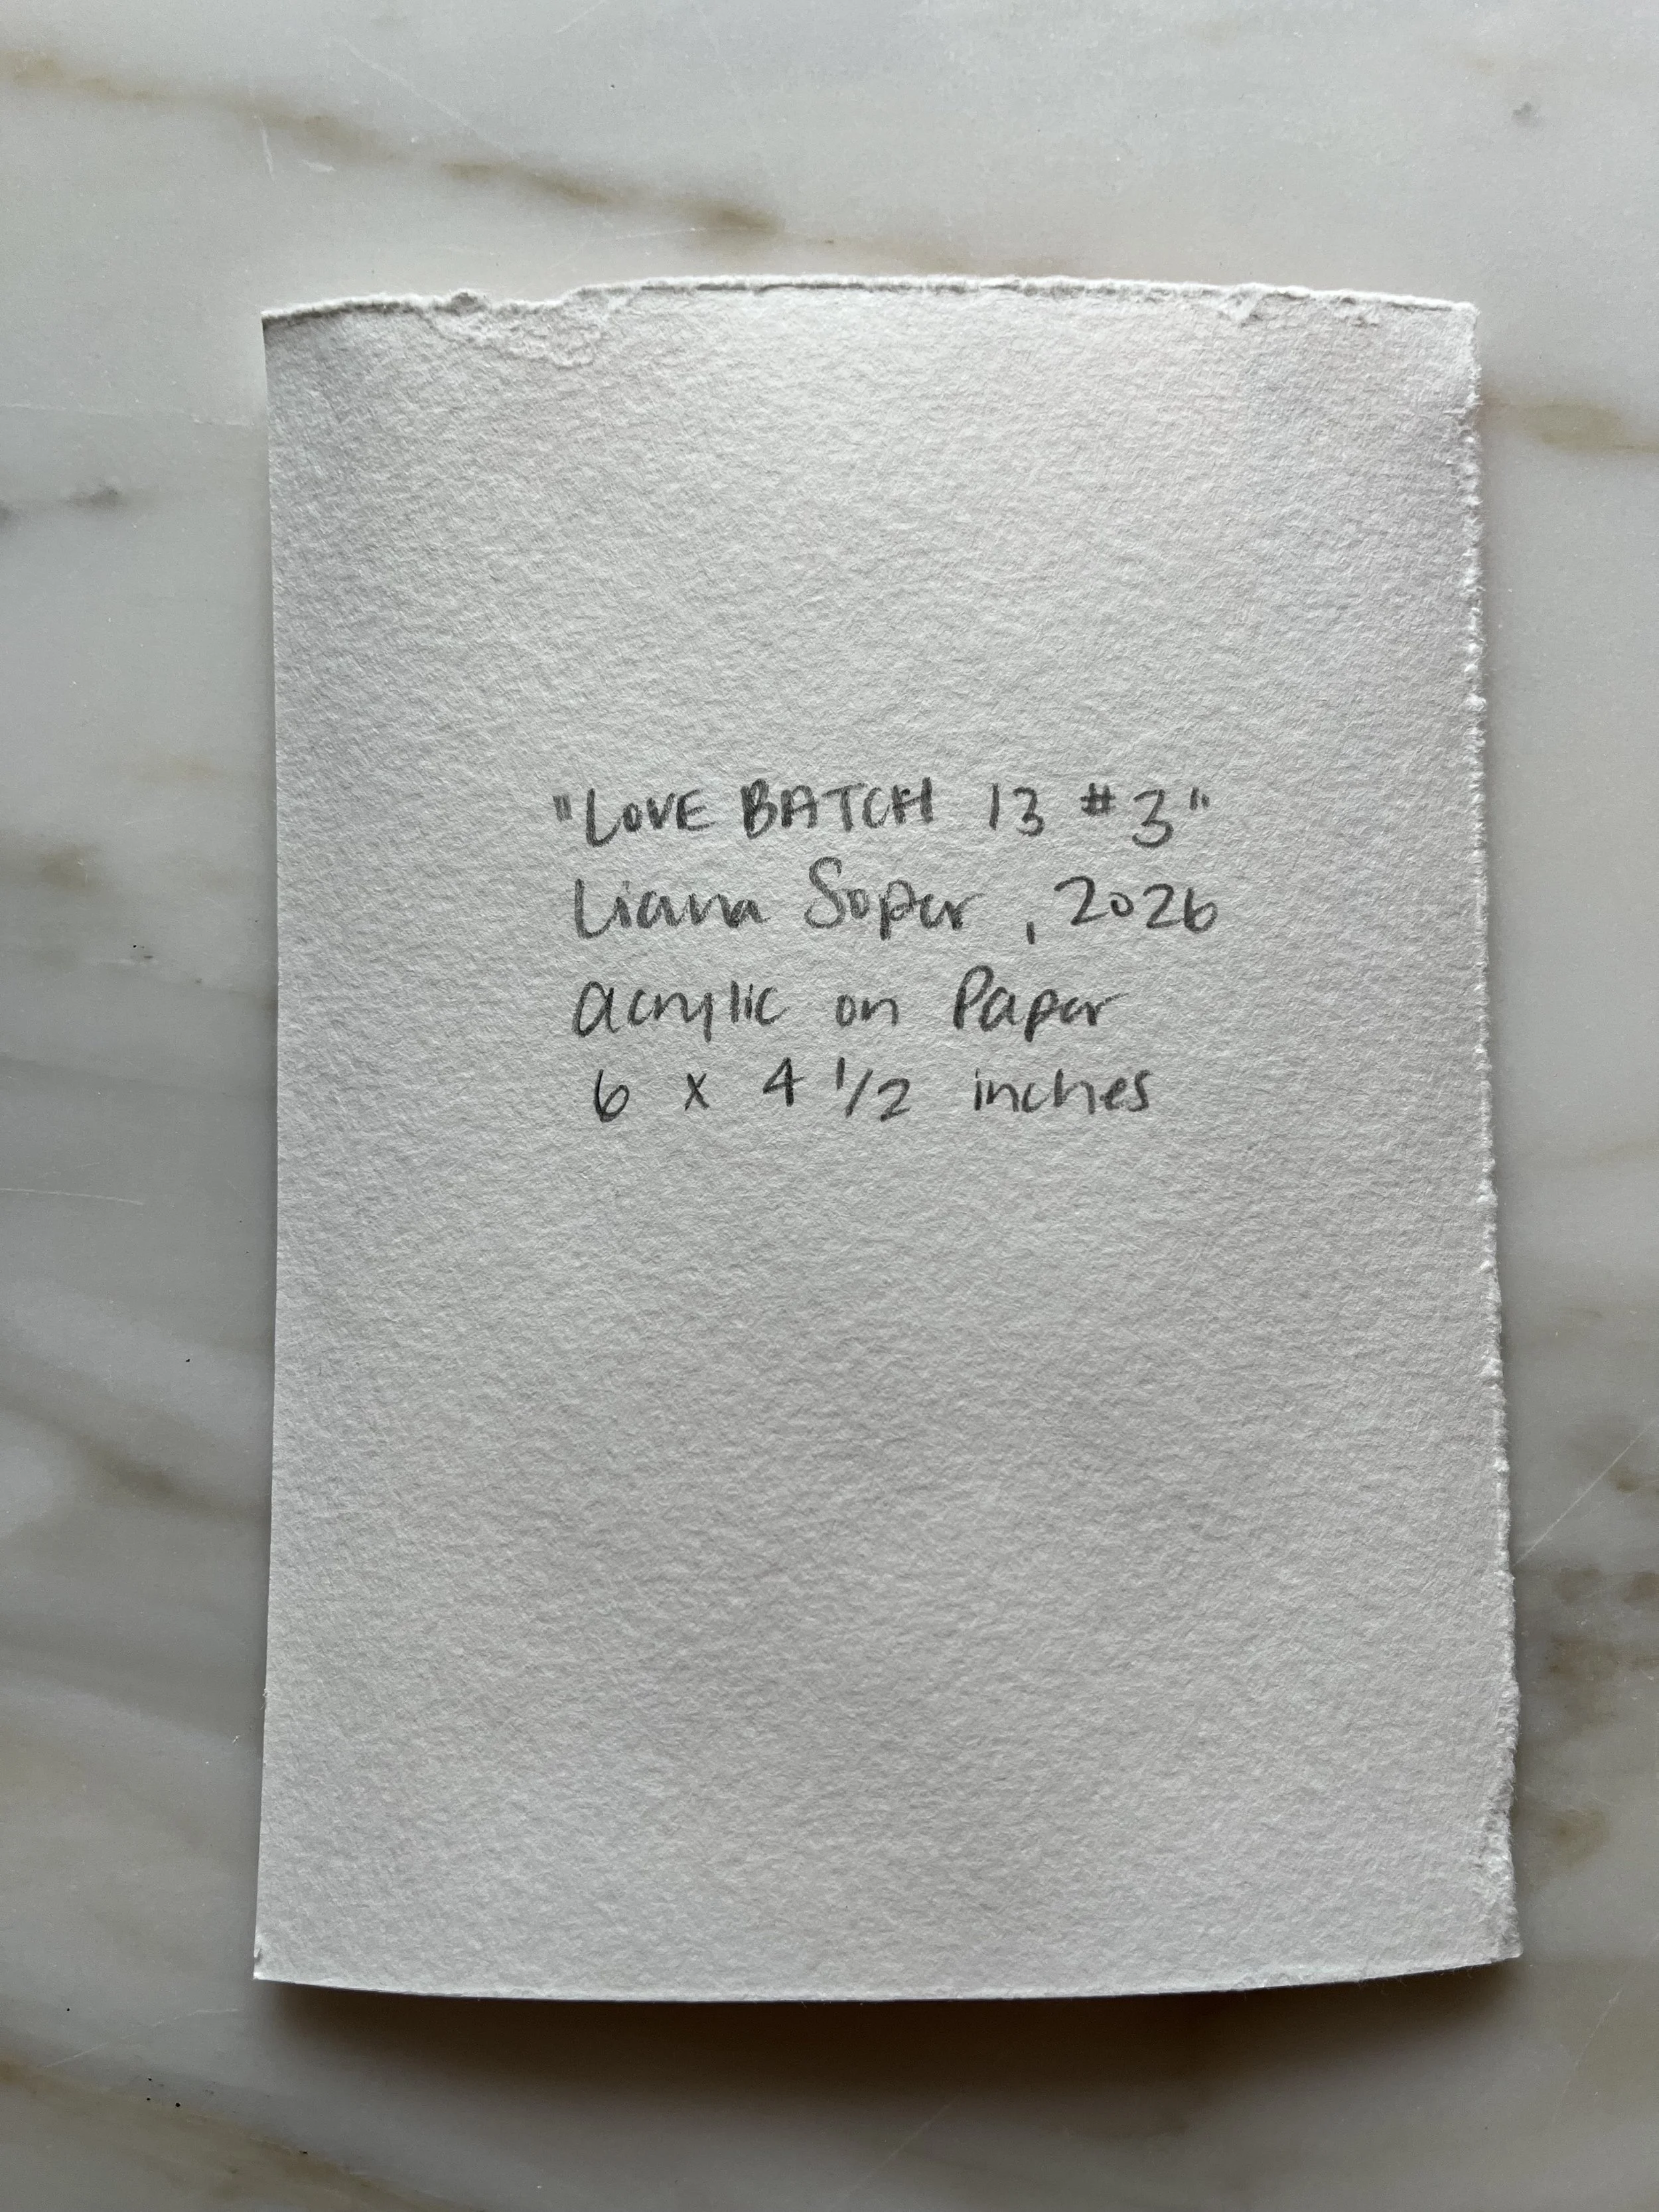 "LOVE BATCH 13 #3"
Liana Soper, 2026
Acrylic on Paper
6 x 4 1/2 inches